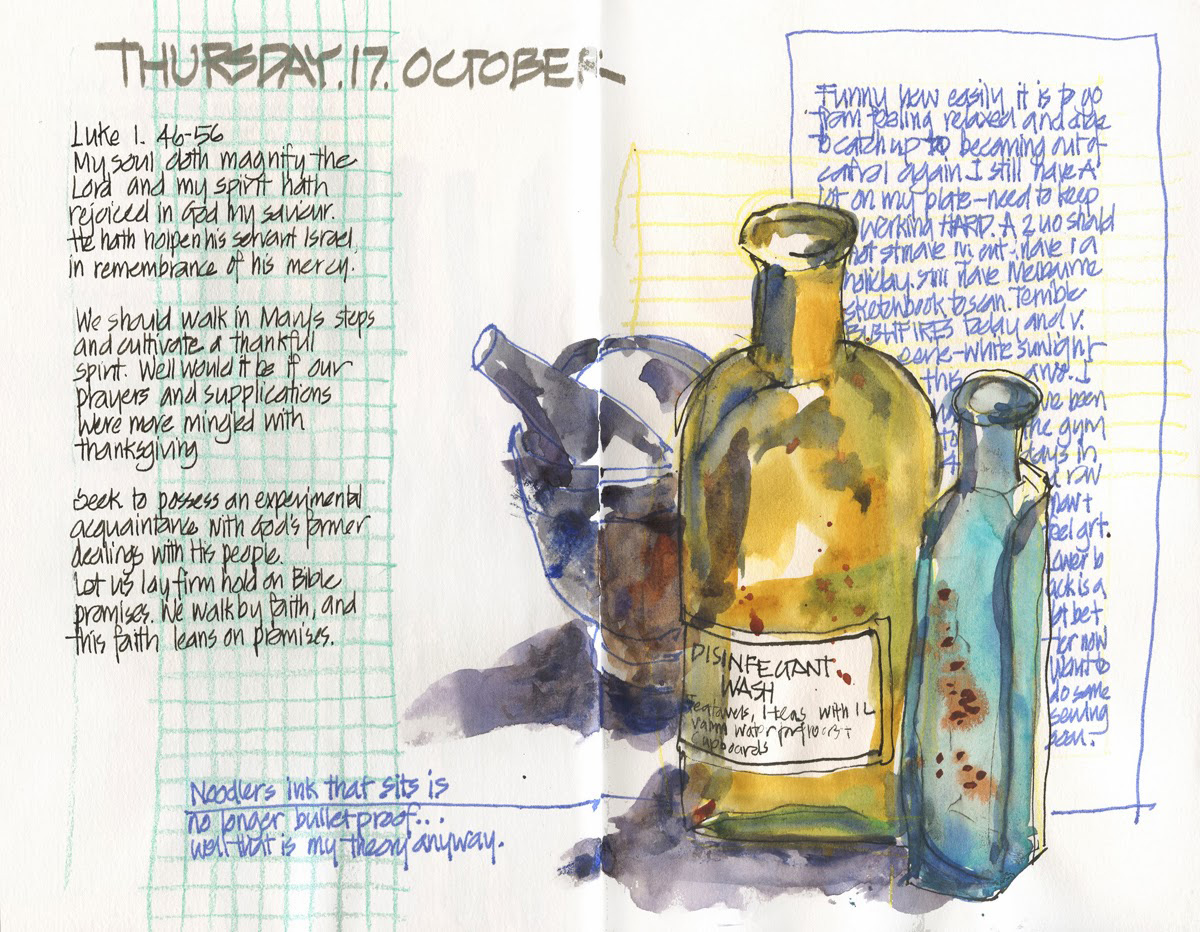 THURSDAY.17.OCTOBER
Luke 1. 46-56
My soul doth magnify the
Lord and my spirit hath
rejoiced in God my saviour.
He hath holpen his servant Israel
in remembrance of his mercy.
We should walk in Mary's steps
and cultivate a thankful
spirit. Well would it be if our
prayers and supplications
were more mingled with
thanksgiving
Seek to possess an experimental
acquaintance with God's former
dealings with His people.
Let us lay firm hold on Bible
promises. We walk by faith, and
this faith leans on promises.
Noodlers ink that sits is
no longer bulletproof...
well that is my theory anyway.
Funny how easily it is to go
from feeling relaxed and able
to catch up to becoming out of
control again. I still have A
lot on my plate-need to keep
working HARD. A
holiday. Still have Melbourne
sketchbook to scan. Terrible
BUSHFIRES today and v.
dark-white sunlight
this
I
ve been
the gym
days in
a row
now +
feel grt.
Lower b
ack is a
lot bet
ter now
Want to
do some
sewing
soon.
DISINFECTANT
WASH
with 1L
warm water for
cupboards